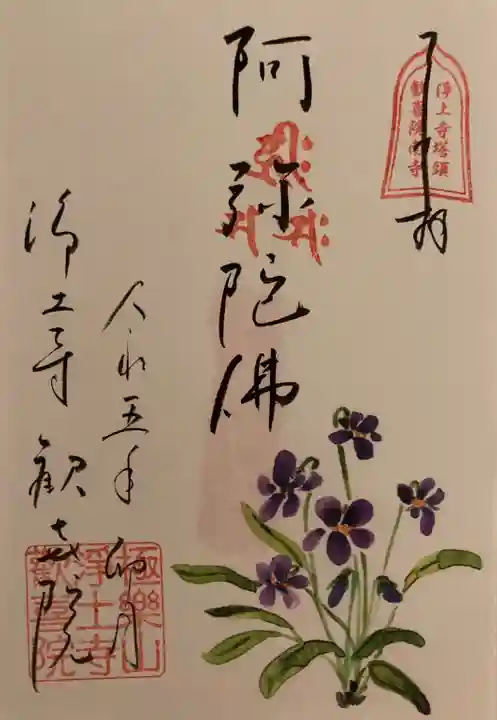 奉拝
浄土寺塔頭
歓喜院南寺
阿弥陀佛
令和五年 卯月
浄土寺 歓喜院
極樂山
浄土寺
歓喜院